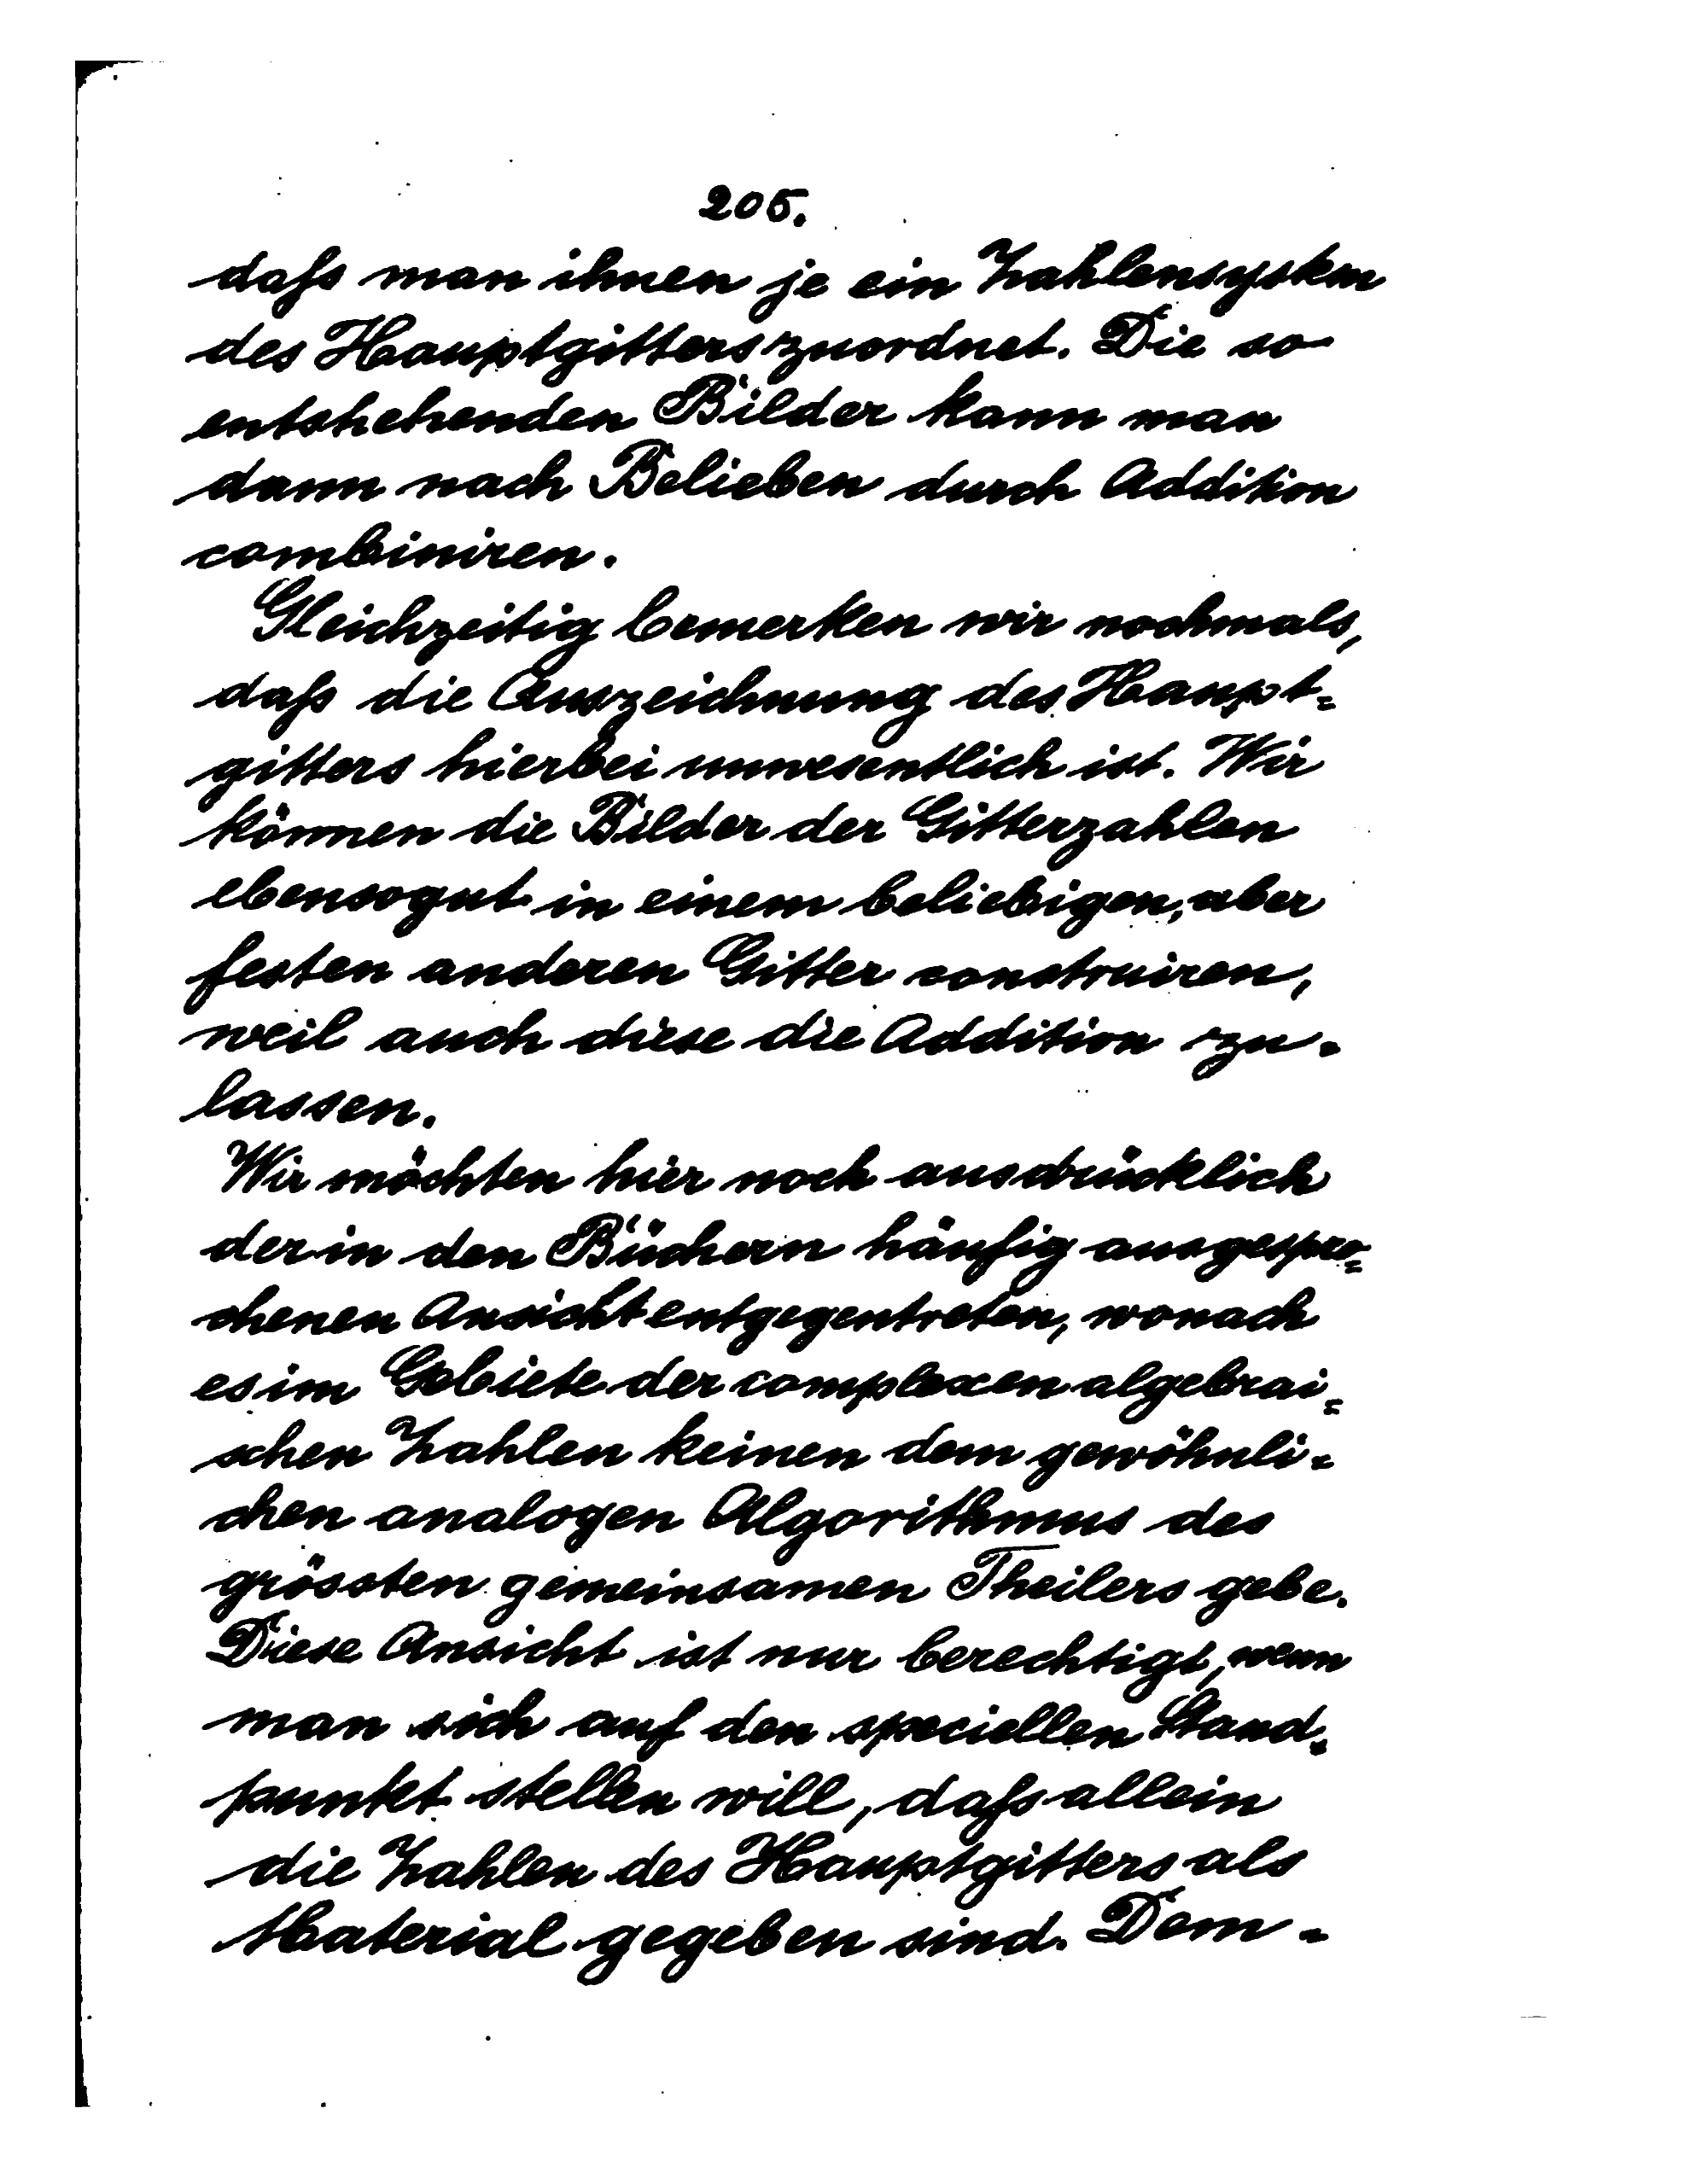 205.
dafs man ihnen je ein Zahlensystem
des Hauptgitters zuordnet. Die so
entstehenden Bilder kann man
dann nach Belieben durch Addition
combiniren.
Gleichzeitig bemerken wir nochmals,
dafs die Auszeichnung des Haupt=
gitters hierbei unwesentlich ist. Wir
können die Bilder der Gitterzahlen
ebensogut in einem beliebigen, aber
festen anderen Gitter construiren,
weil auch diese die Addition zu=
lassen.
Wir möchten hier noch ausdrücklich
der in den Büchern häufig ausgespro=
chenen Ansicht entgegentreten, wonach
es im Gebiete der complexen algebrai=
schen Zahlen keinen dem gewöhnli=
chen analogen Algorithmus des
grössten gemeinsamen Theilers gebe.
Diese Ansicht ist nur berechtigt, wenn
man sich auf den speciellen Stand=
punkt stellen will, dafs allein
die Zahlen des Hauptgitters als
Material gegeben sind. Dem=